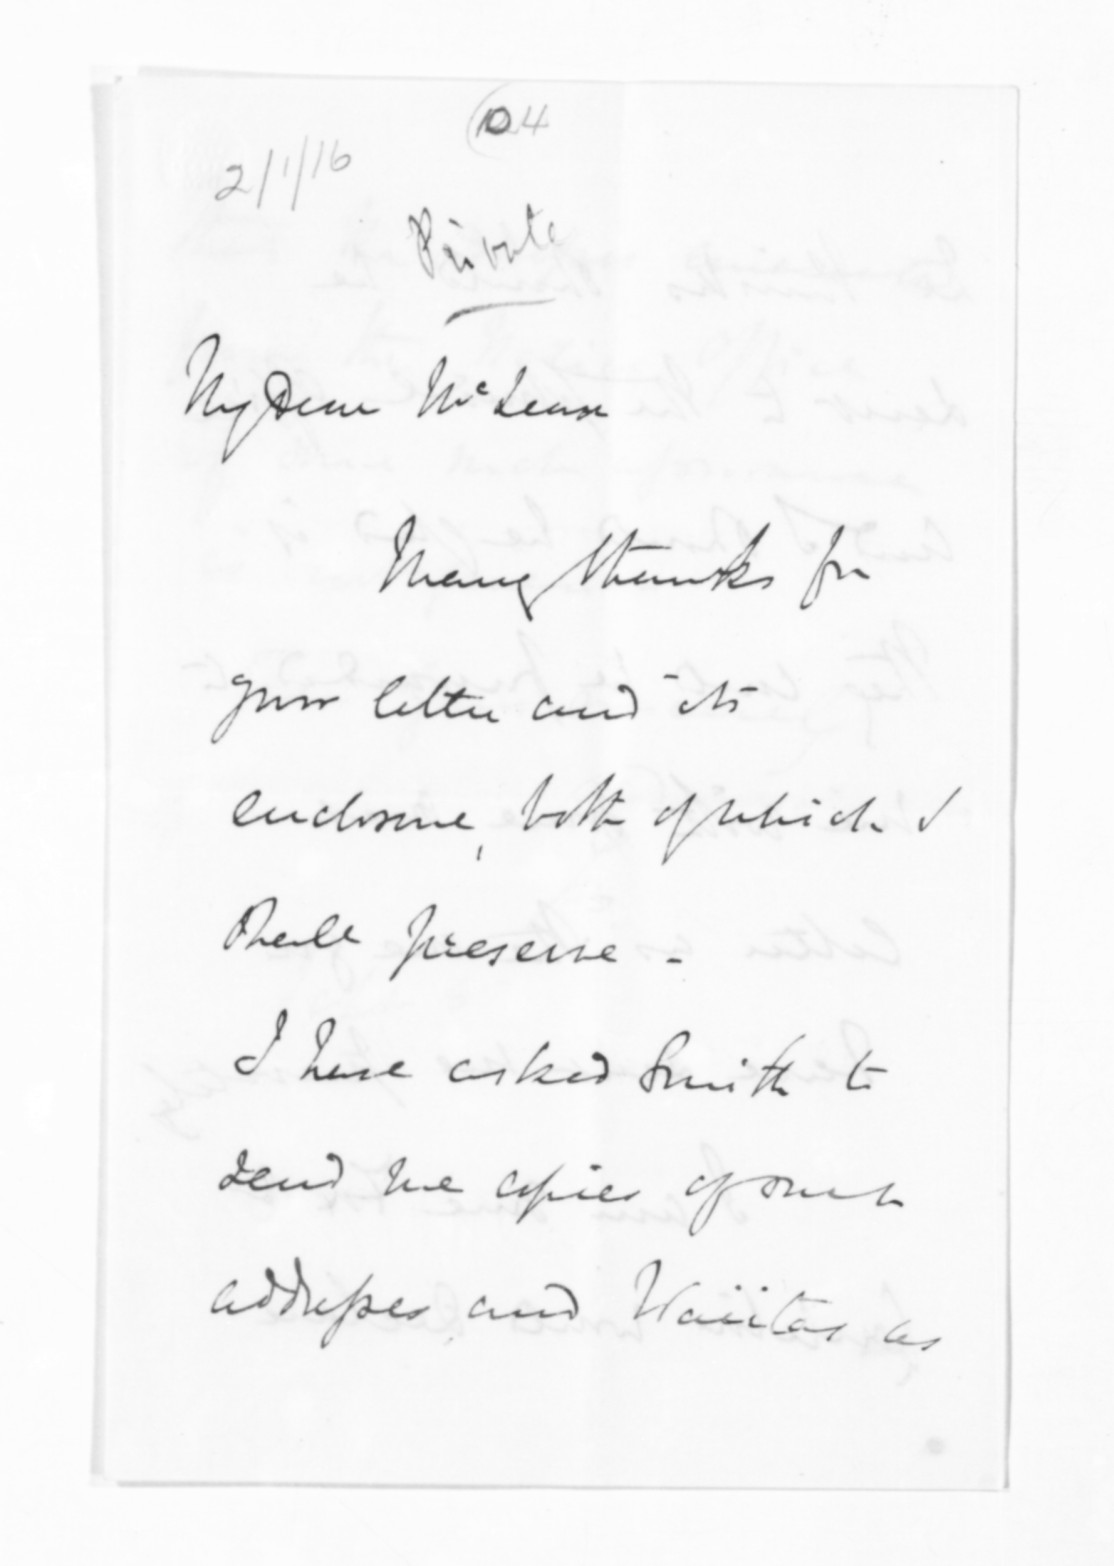 24
2/1/16
Private
My Dear McLean
Many thanks for
your letter and its
enclosure, both of which I
shall preserve -
I have asked Smith to
send me copies of such
addresses, and Waiatas as